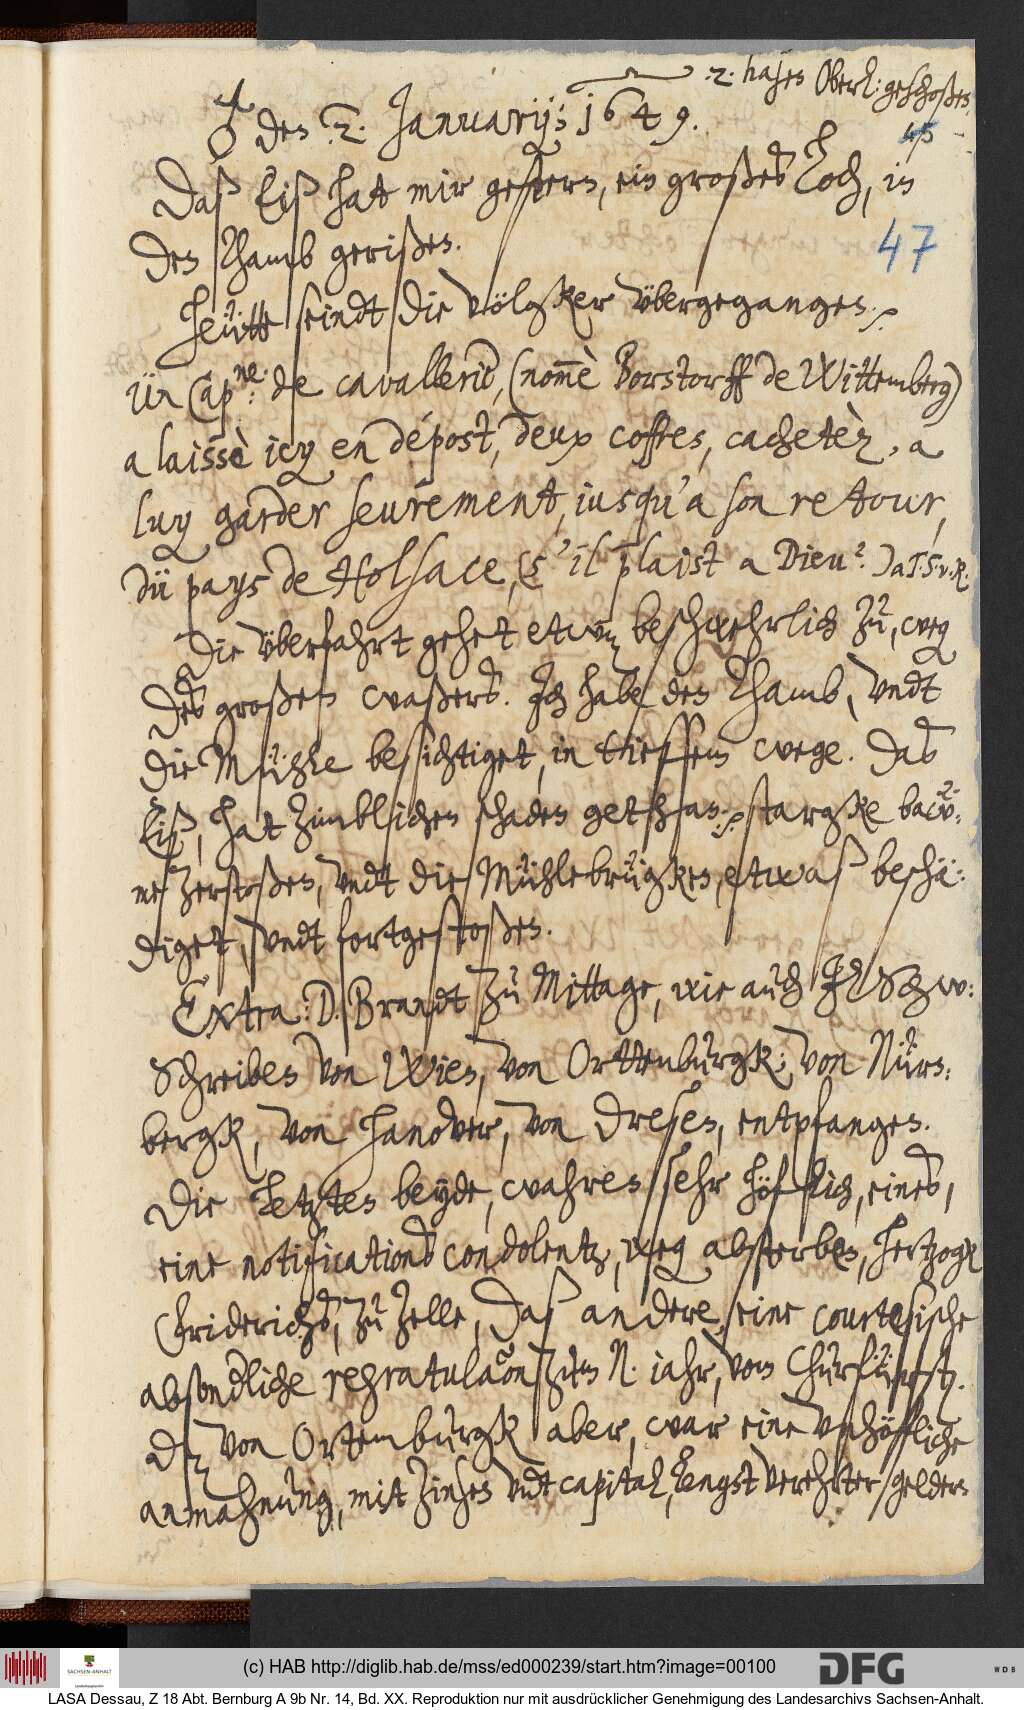 .2. hasen Oberl: geschoßen
♂ den 2. Januarij: 1649.
45
Daß Eiß hat mir gestern, ein großes Loch, in
47
den Thamb gerißen.
Heütte seindt die völgker übergegangen.
Ün Cap.ne de cavallerie, (nomè Borstorff de Wittemberg)
a laissè icy en dépost, deux coffres, cachetèz, a
luy garder seurement, jusqu'a son retour,
dü pays de Holsace, (s'il plaist a Dieu.)
Die überfahrt gehet etwaß beschwehrlich zu, weg
des großen waßers. Ich habe den Thamb, undt
die Mühle besichtiget, in tieffem wege. Das
Eiß, hat zimblichen schaden gethan. stargke baw:
me zerstoßen, undt die Mühlebrügken, etwaß beschä:
diget, undt fortgestoßen.
Extra: D. Brandt zu Mittage, wie auch
Schreiben von Wien, von Ortenburgk, von Nürn:
bergk, von Hanover, von Dresen, entpfangen.
Die letzten beyde, wahren sehr höflich, eines,
eine notifications condolentz, weg absterben, Hertzogk
Friderichs, zu Zelle, daß andere, eine courtesische
absondliche regratulaõn zum N. jahr, vom Churfürsten.
Dz von Ortemburgk aber, war eine unhöffliche
anmahnung, mit Zinsen undt capital, längst verehrter gelder
(c) HAB http://diglib.hab.de/mss/ed000239/start.htm?image=00100
SACHSEN-ANHALT
DFG
WDB
LASA Dessau, Z 18 Abt. Bernburg A 9b Nr. 14, Bd. XX. Reproduktion nur mit ausdrücklicher Genehmigung des Landesarchivs Sachsen-Anhalt.